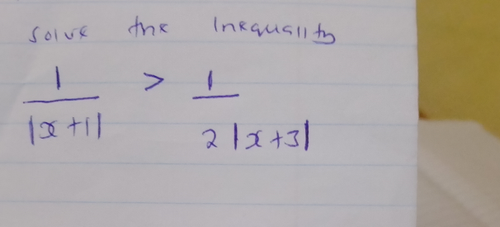 solve the Inequality
1 / |x+1| > 1 / 2|x+3|